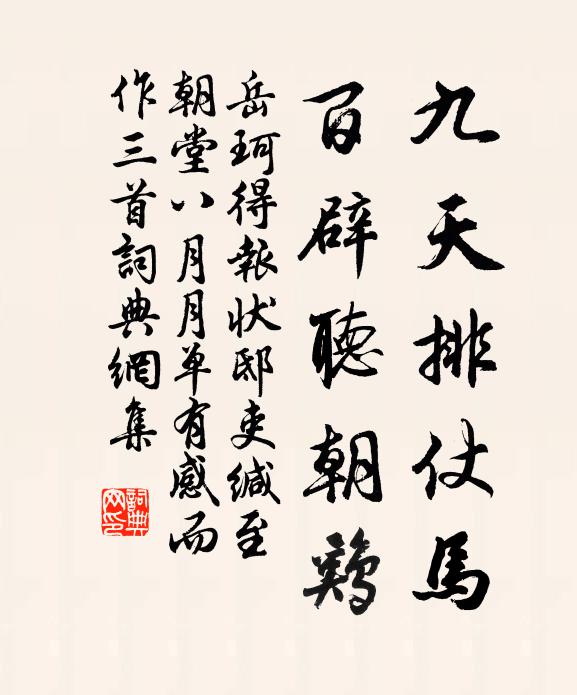 九天排仗馬
百辟聽朝鷄
岳珂得報狀邸吏緘至
朝堂八月月单有感而
作三首詞典網集
詞典网印